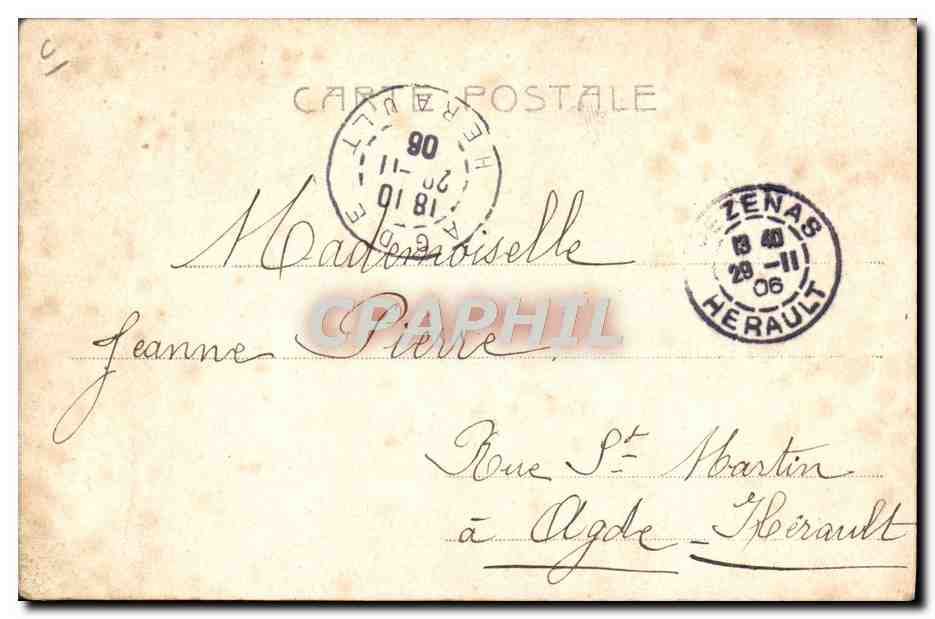 CARTE POSTALE
AGDE
18 10
29 -11
06
HERAULT
ZENAS
13 40
29 -11
06
HERAULT
Mademoiselle
CPAPHIL
Jeanne Pierre.
Rue St Martin
à Agde - Hérault